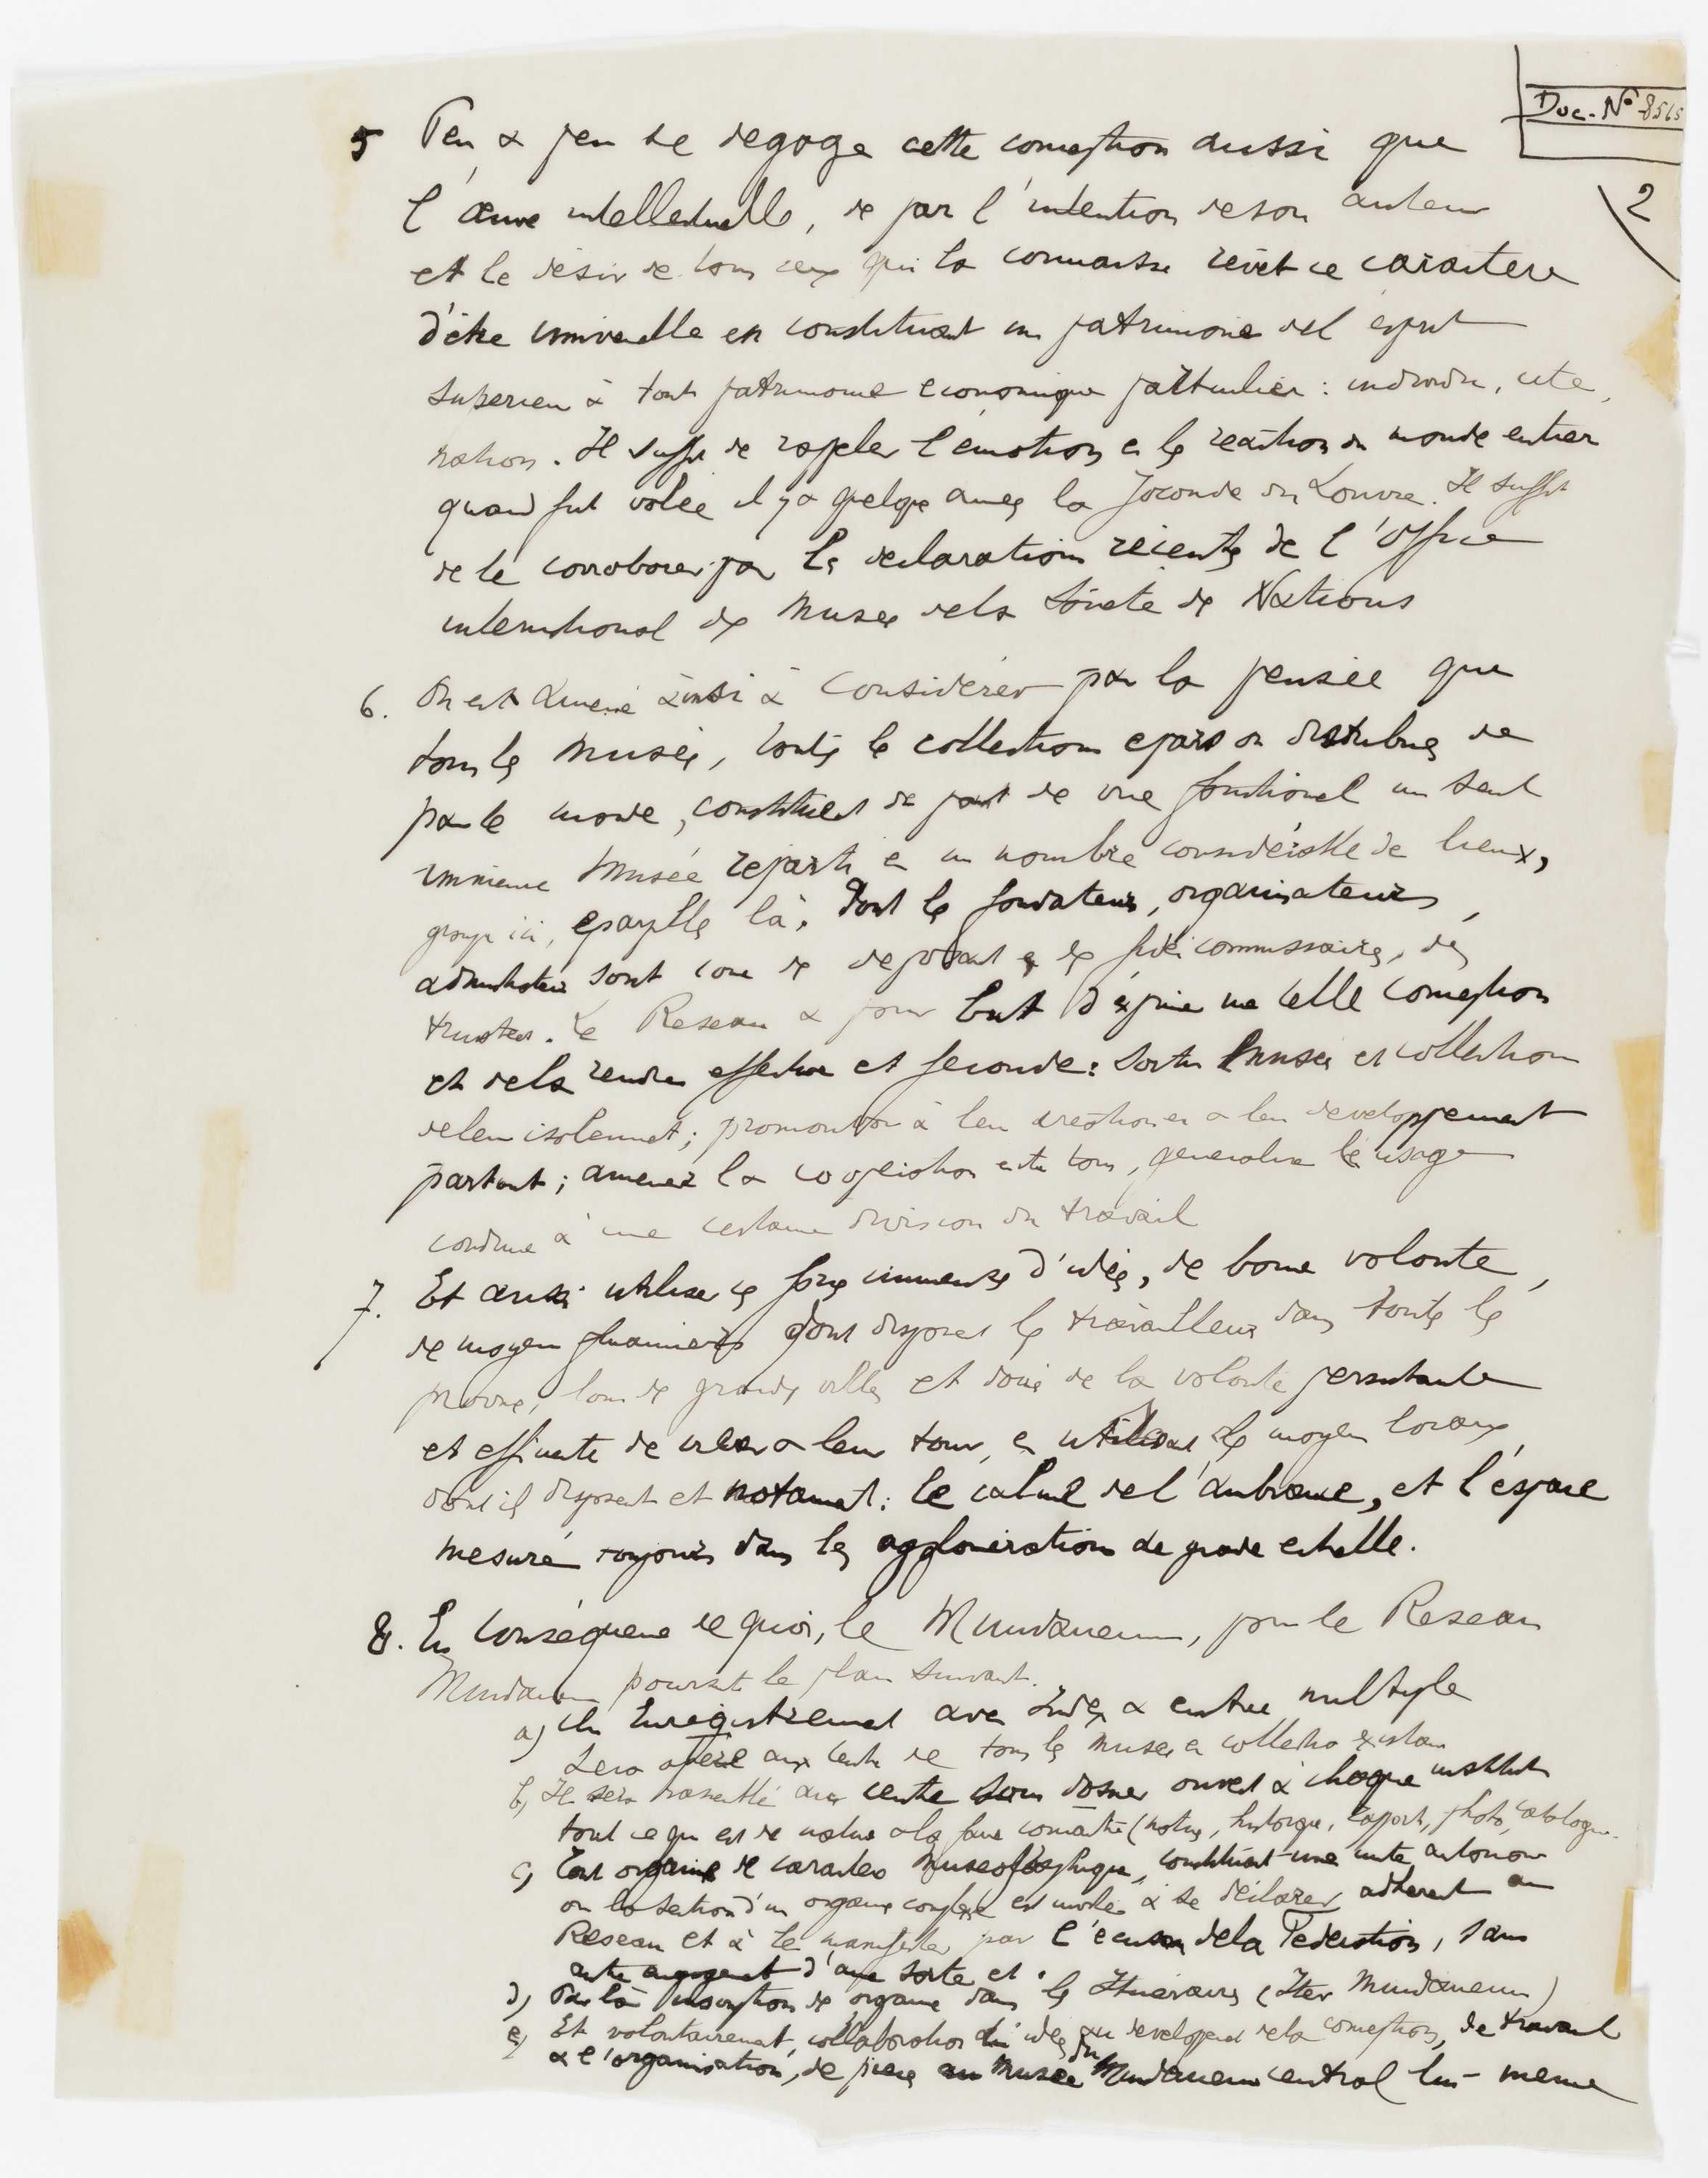 Doc. N° 8565
2
5 Peu à peu se degage cette conception aussi que
l'œuvre intellectuelle, de par l'intention de son auteur
et le désir de tous ceux qui la connaitre revêt ce caractere
d'être universelle en constituant un patrimoine de l'esprit
superieur à tout patrimoine economique particulier : individu, cité,
nation. Il suffit de rappeler l'emotion et la reaction du monde entier
quand fut volée il y a quelques années la Joconde du Louvre. Il suffit
de le corroborer par les declarations récentes de l'Office
international des Musees de la Société des Nations
6. On est amené ainsi à considérer par la pensée que
tous les musées, toutes les collections epars ou distribués de
par le monde, constituent du point de vue fonctionel un seul
immense Musée reparti en un nombre considérable de lieux,
groupe ici, eparpillé là, dont les fondateurs, organisateurs,
administrateurs sont comme des deposants et des fidei commissaires, des
trustees. Le Reseau a pour but d'exprimer une telle conception
et de la rendre effective et feconde : sortir Musees et collections
de leur isolement ; promouvoir à leur creation et a leur developpement
partout ; amener la cooperation entre tous, generaliser les usages
conduire à une certaine division du travail
7. Et aussi utiliser les forces immenses d'idées, de bonne volonté,
de moyens financiers dont disposent les travailleurs dans toutes les
provinces, loin des grandes villes et doués de la volonté persistante
et efficiente de créer a leur tour, en utilisant les moyens locaux
dont ils disposent et notamment : le calme de l'ambiance, et l'espace
mesuré toujours dans les agglomérations de grande echelle.
8. En conséquence de quoi, le Mundaneum, pour le Reseau
Mundaneum poursuit le plan suivant.
a) Un Enregistrement avec Index à entrée multiple
sera opéré aux centre de tous les musees et collections existant
b) Il sera rassemblé au centre dossier ouvert à chaque institut
tout ce qui est de nature a la faire connaitre (notices, historique, rapports, photos, catalogue.
c) Tout organisme de caractere museographique, constituant une unité autonome
ou la section d'un organisme complexe est invité à se déclarer adherent au
Reseau et à le manifester par l'écusson de la Federation, sans
autre engagement d'aucune sorte et .
d) Par là inscription des organismes dans les Itineraires (Iter Mundaneum)
e) Et volontairement, collaboration au developpement de la conception, de travail
à l'organisation, de pieces au Musée du Mundaneum central lui-meme